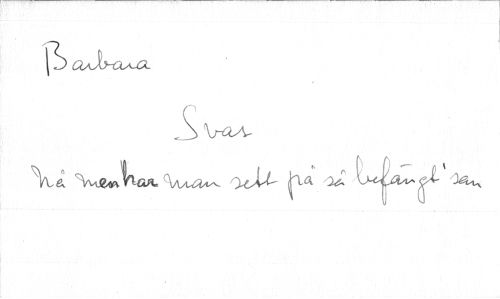 Barbara
Svar
Nå men har man sett på så befängt' san